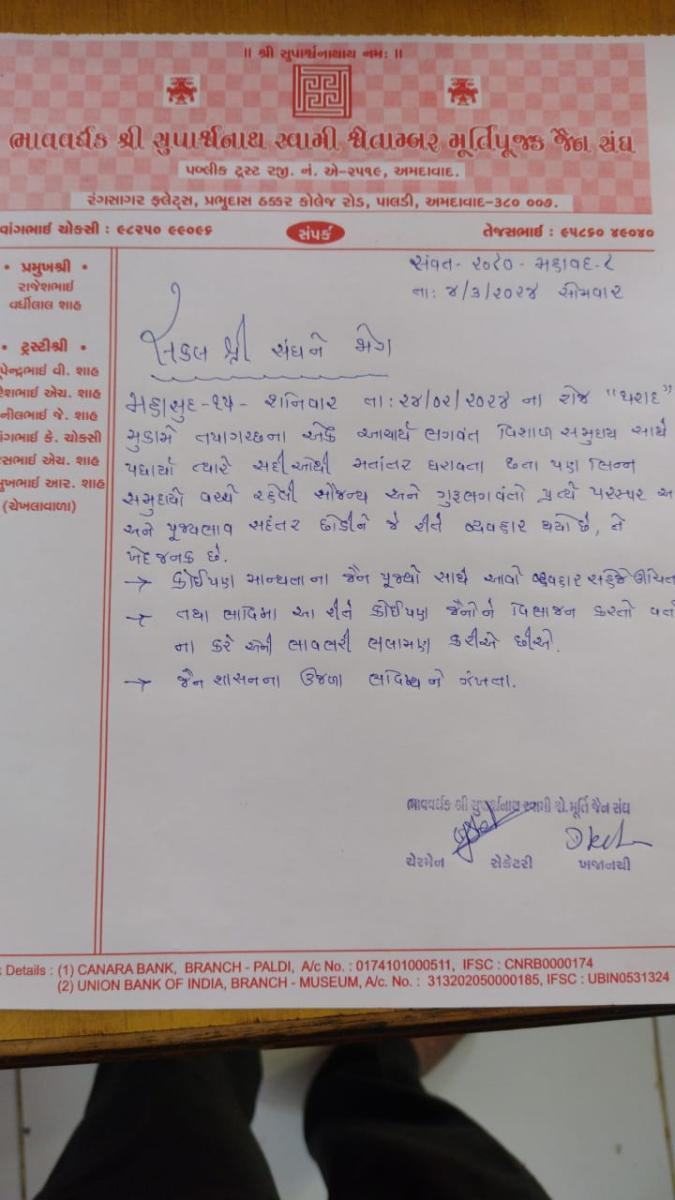 ॥ શ્રી સુપાર્શ્વનાથાય નમઃ ॥
ભાવવર્ધક શ્રી સુપાર્શ્વનાથ સ્વામી શ્વેતામ્બર મૂર્તિપૂજક જૈન સંઘ
પબ્લીક ટ્રસ્ટ રજી. નં. એ-૨૫૧૯, અમદાવાદ.
રંગસાગર ફ્લેટ્સ, પ્રભુદાસ ઠક્કર કોલેજ રોડ, પાલડી, અમદાવાદ-૩૮૦ ૦૦૭.
વાંગભાઈ ચોક્સી : ૯૮૨૫૦ ૯૯૦૯૬ સંપર્ક તેજસભાઈ : ૯૫૮૬૦ ૪૯૦૪૦
• પ્રમુખશ્રી •
રાજેશભાઈ
વર્ધીલાલ શાહ
• ટ્રસ્ટીશ્રી •
પેન્દ્રભાઈ વી. શાહ
રેશભાઈ એચ. શાહ
નીલભાઈ જે. શાહ
ાંગભાઈ કે. ચોક્સી
જસભાઈ એચ. શાહ
મુખભાઈ આર. શાહ
(ચેખલાવાળા)
સંવત- ૨૦૮૦ - મહાવદ-૮
તા: ૪/૩/૨૦૨૪ સોમવાર
સકલ શ્રી સંઘને જોગ
મહાસુદ-૧૫- શનિવાર તા: ૨૪/૦૨/૨૦૨૪ ના રોજ "થરાદ"
મુકામે તપાગચ્છના એક આચાર્ય ભગવંત વિશાળ સમુદાય સાથે
પધાર્યા ત્યારે સદીઓથી મતાંતર ધરાવતા છતા પણ ભિન્ન
સમુદાયો વચ્ચે રહેલી સૌજન્ય અને ગુરૂભગવંતો પ્રત્યે પરસ્પર આ
અને પૂજ્યભાવ સદંતર છોડીને જે રીતે વ્યવહાર થયો છે, તે
ખેદ જનક છે.
→ કોઈપણ માન્યતાના જૈન પૂજ્યો સાથે આવો વ્યવહાર સહેજે ઊચિત
→ તથા ભાવિમાં આ રીતે કોઈપણ જૈનોને વિભાજન કરતો વર્ત
ના કરે એવી ભાવભરી ભલામણ કરીએ છીએ.
→ જૈન શાસનના ઉજળા ભવિષ્ય ને ઝંખતા.
ભાવવર્ધક શ્રી સુપાર્શ્વનાથ સ્વામી શ્વે. મૂર્તિ જૈન સંઘ
ચેરમેન સેક્રેટરી ખજાનચી
Details : (1) CANARA BANK, BRANCH - PALDI, A/c No. : 0174101000511, IFSC : CNRB0000174
(2) UNION BANK OF INDIA, BRANCH - MUSEUM, A/c. No. : 313202050000185, IFSC : UBIN0531324